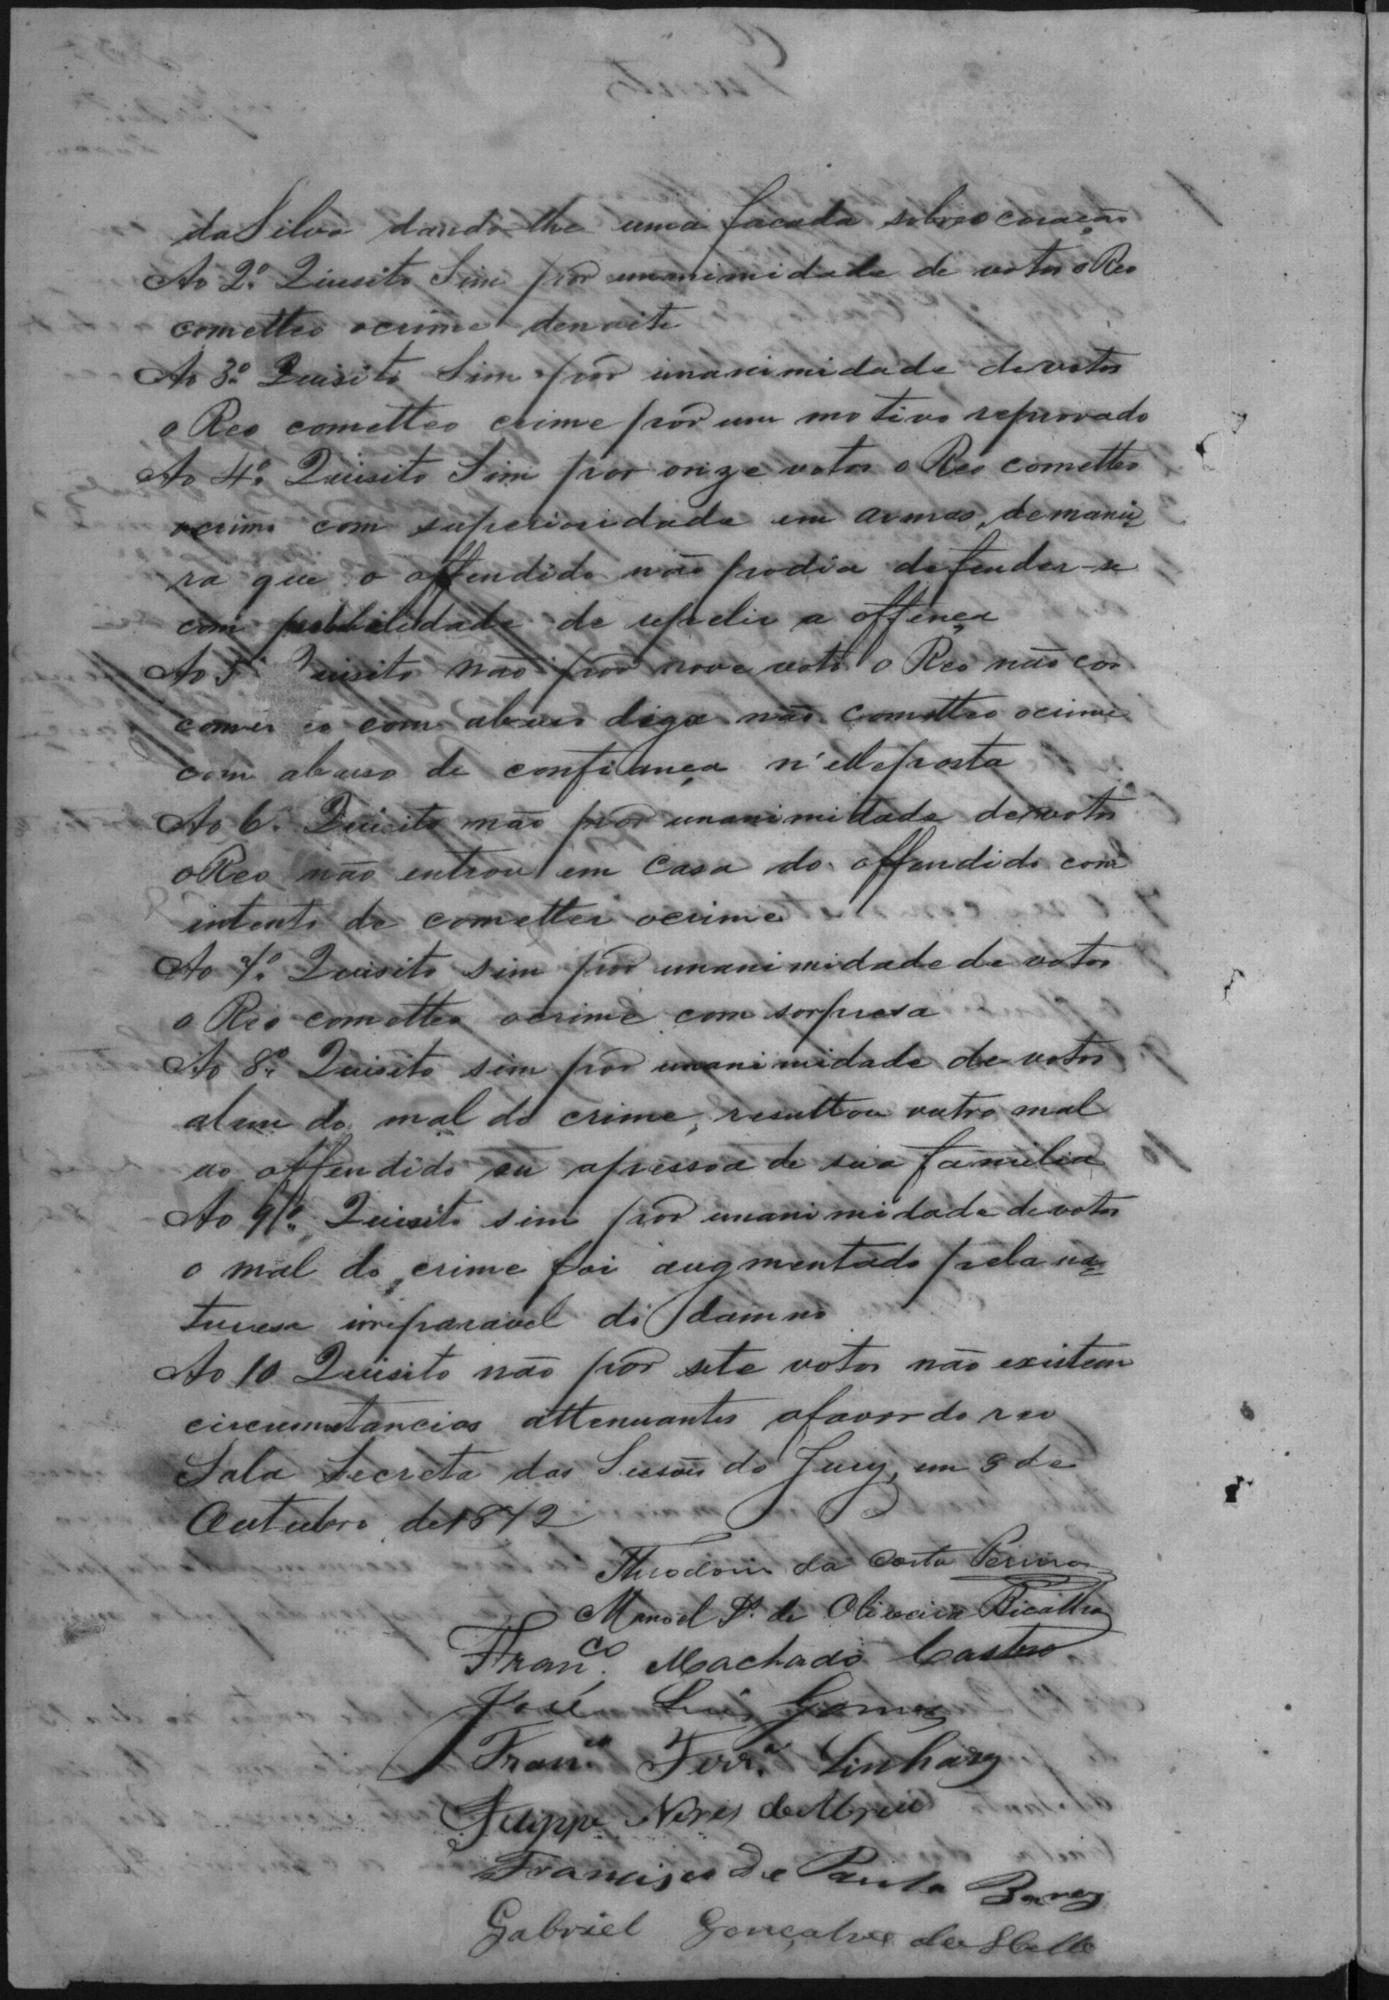 da Silva dando-lhe uma facada sobre o coração
Ao 2º Quisito Sim por unanimidade de votos o Reo
cometteo o crime de noite
Ao 3º Quisito Sim por unanimidade de votos
o Reo cometteo crime por um motivo reprovado
Ao 4º Quisito Sim por onze votos o Reo cometteo
o crime com superioridade em armas, de manei
ra que o offendido não podia defender-se
com probilidade de repelir a offença
Ao 5º Quisito não por nove votos o Reo não co
com abuso digo não cometteo o crime
com abuso de confiança n'elle posta
Ao 6º Quisito não por unanimidade de votos
o Reo não entrou em casa do offendido com
intento de cometter o crime
Ao 7º Quisito sim por unanimidade de votos
o Reo cometteo o crime com sorpresa
Ao 8º Quisito sim por unanimidade de votos
alem do mal do crime, resultou outro mal
ao offendido ou a pessoa de sua familia
Ao 9º Quisito sim por unanimidade de votos
o mal do crime foi augmentado pela na
turesa irreparavel do damno
Ao 10 Quisito não por sete votos não existem
circumstancias attenuantes a favor do reo
Sala Secreta das Sessões do Jury, em 5 de
Outubro de 1872
Theodoro da Costa
Manoel de Oliveira
Fran.co Machado Castro
José Luis Gomes
Fran.co Ferr.a Linhares
Fillippe Neres de Abreu
Francisco de Paula
Gabriel Gonçalves de Mello